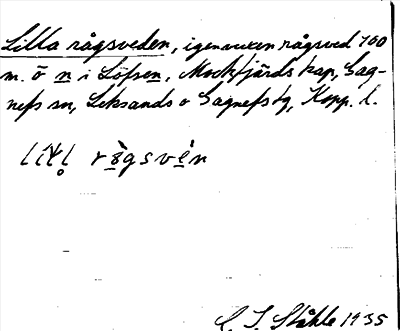 Lilla rågsveden, igenvuxen rågsved 700
m. ö n i Löfsen, Mockfjärds kap, Gag-
nefs sn, Leksands o Gagnefs tg, Kopp. l.
C. I. Ståhle 1935